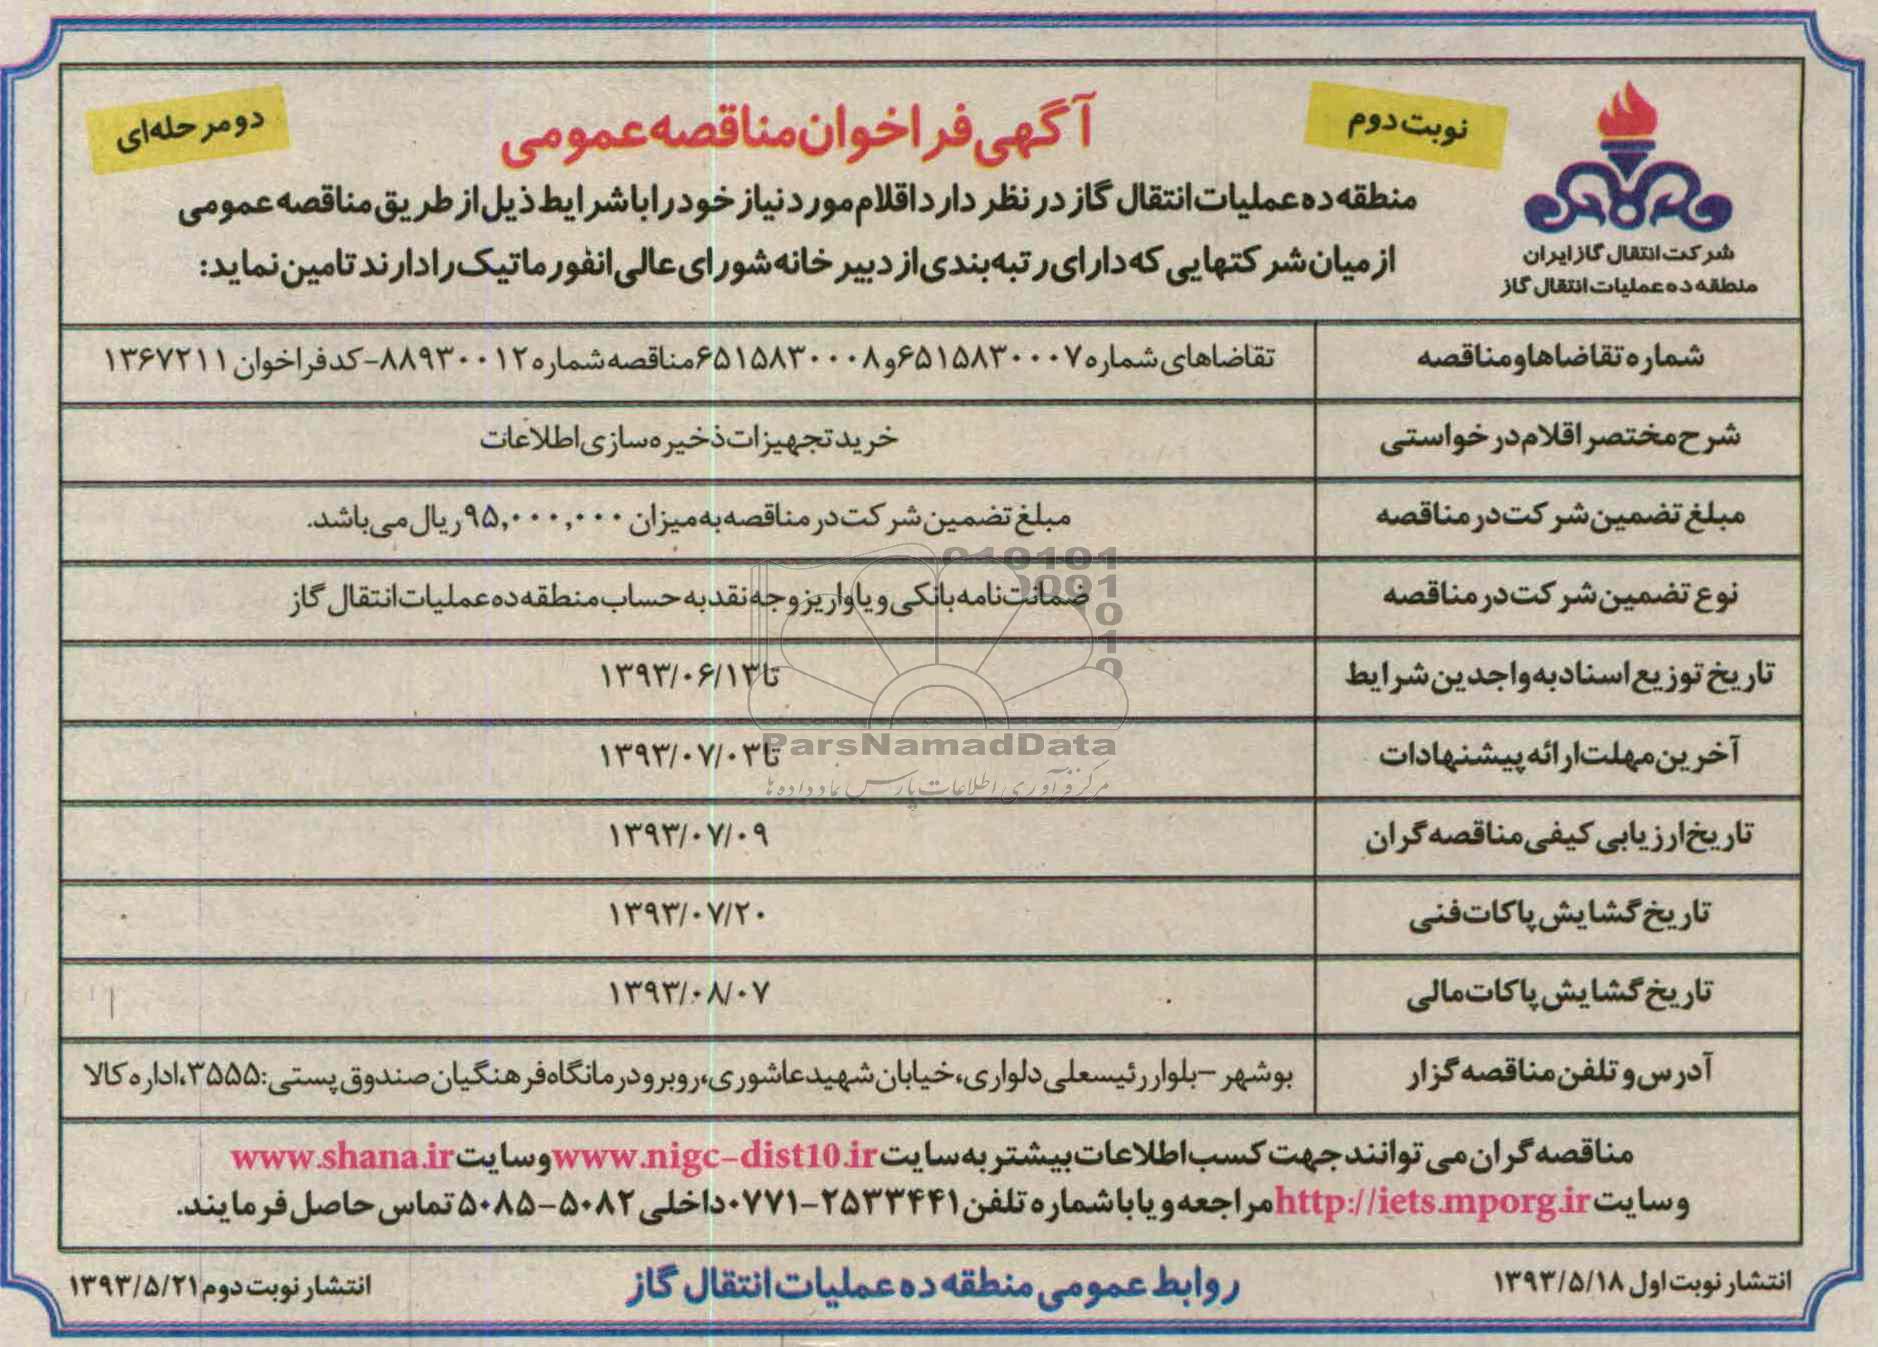 نوبت دوم
آگهی فراخوان مناقصه عمومی
دو مرحله‌ای
شرکت انتقال گاز ایران
منطقه ده عملیات انتقال گاز
منطقه ده عملیات انتقال گاز در نظر دارد اقلام مورد نیاز خود را با شرایط ذیل از طریق مناقصه عمومی
از میان شرکتهایی که دارای رتبه‌بندی از دبیرخانه شورای عالی انفورماتیک را دارند تامین نماید:
شماره تقاضاها و مناقصه تقاضاهای شماره ۶۵۱۵۸۳۰۰۰۷ و ۶۵۱۵۸۳۰۰۰۸ مناقصه شماره ۸۸۹۳۰۰۱۲-کد فراخوان ۱۳۶۷۲۱۱
شرح مختصر اقلام درخواستی خرید تجهیزات ذخیره سازی اطلاعات
مبلغ تضمین شرکت در مناقصه مبلغ تضمین شرکت در مناقصه به میزان ۹۵,۰۰۰,۰۰۰ ریال می باشد.
نوع تضمین شرکت در مناقصه ضمانت نامه بانکی و یا واریز وجه نقد به حساب منطقه ده عملیات انتقال گاز
تاریخ توزیع اسناد به واجدین شرایط تا ۱۳۹۳/۰۶/۱۳
آخرین مهلت ارائه پیشنهادات تا ۱۳۹۳/۰۷/۰۳
تاریخ ارزیابی کیفی مناقصه گران ۱۳۹۳/۰۷/۰۹
تاریخ گشایش پاکات فنی ۱۳۹۳/۰۷/۲۰
تاریخ گشایش پاکات مالی ۱۳۹۳/۰۸/۰۷
آدرس و تلفن مناقصه گزار بوشهر -بلوار رئیسعلی دلواری، خیابان شهید عاشوری، روبرو درمانگاه فرهنگیان صندوق پستی:۳۵۵۵، اداره کالا
مناقصه گران می توانند جهت کسب اطلاعات بیشتر به سایت www.nigc-dist10.ir و سایت www.shana.ir
و سایت http://iets.mporg.ir مراجعه و یا با شماره تلفن ۲۵۳۳۴۴۱-۰۷۷۱ داخلی ۵۰۸۲-۵۰۸۵ تماس حاصل فرمایند.
انتشار نوبت اول ۱۳۹۳/۵/۱۸
روابط عمومی منطقه ده عملیات انتقال گاز
انتشار نوبت دوم ۱۳۹۳/۵/۲۱
010101
0001
0
1
0
ParsNamadData
مرکز فرآوری اطلاعات پارس نماد داده ها